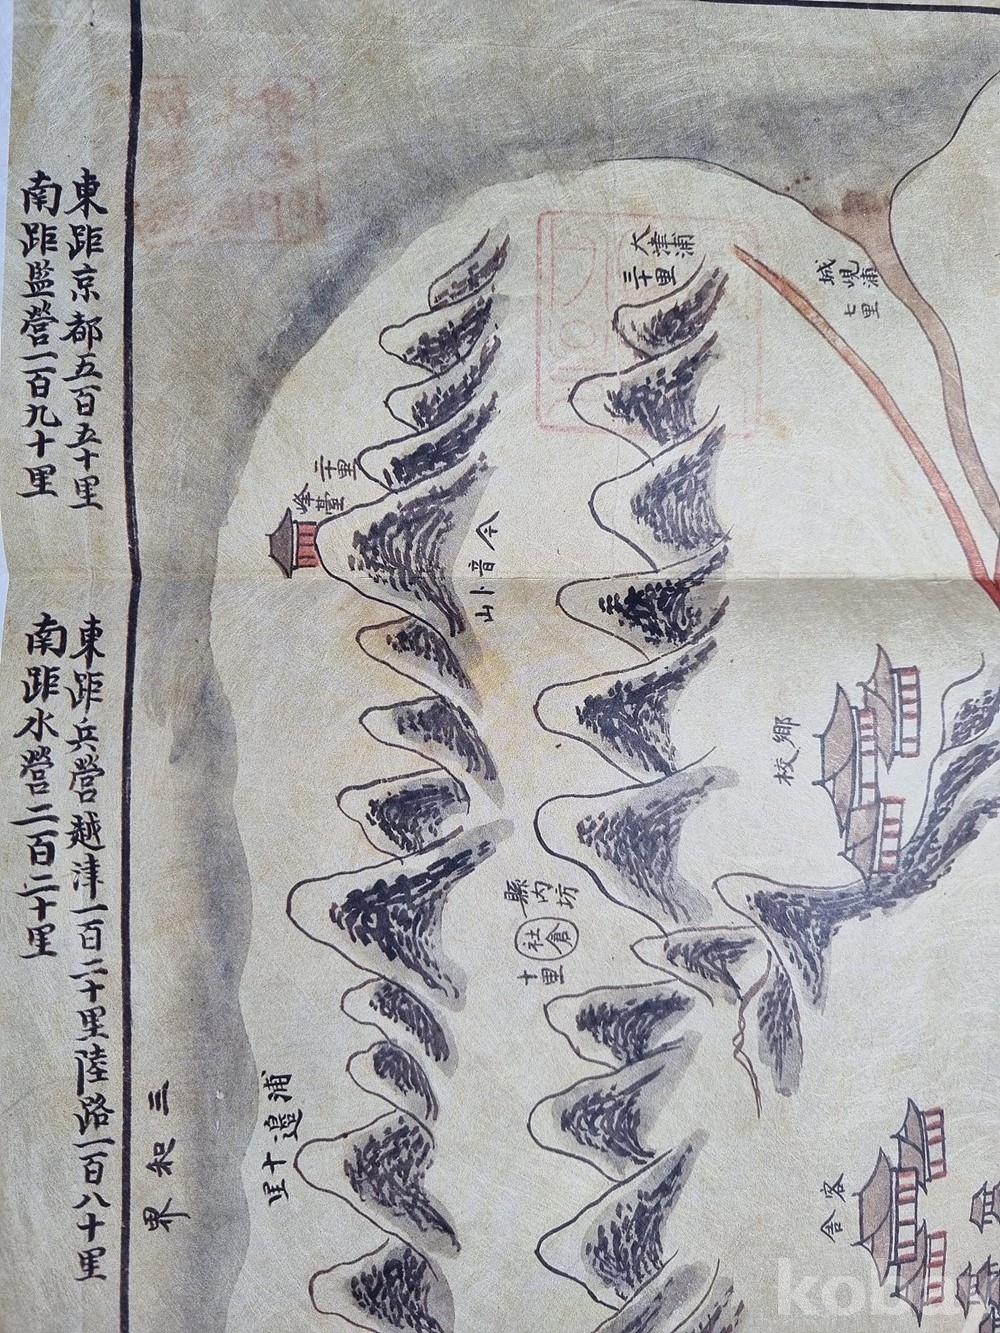 東距京都五百五十里
南距監營一百九十里
東距兵營越津一百二十里陸路一百八十里
南距水營二百二十里
大津浦
三十里
城峴浦
七里
二十里
烽臺
山
鄕校
縣內坊
社倉
十里
浦邊十里
三和界
客舍
koba